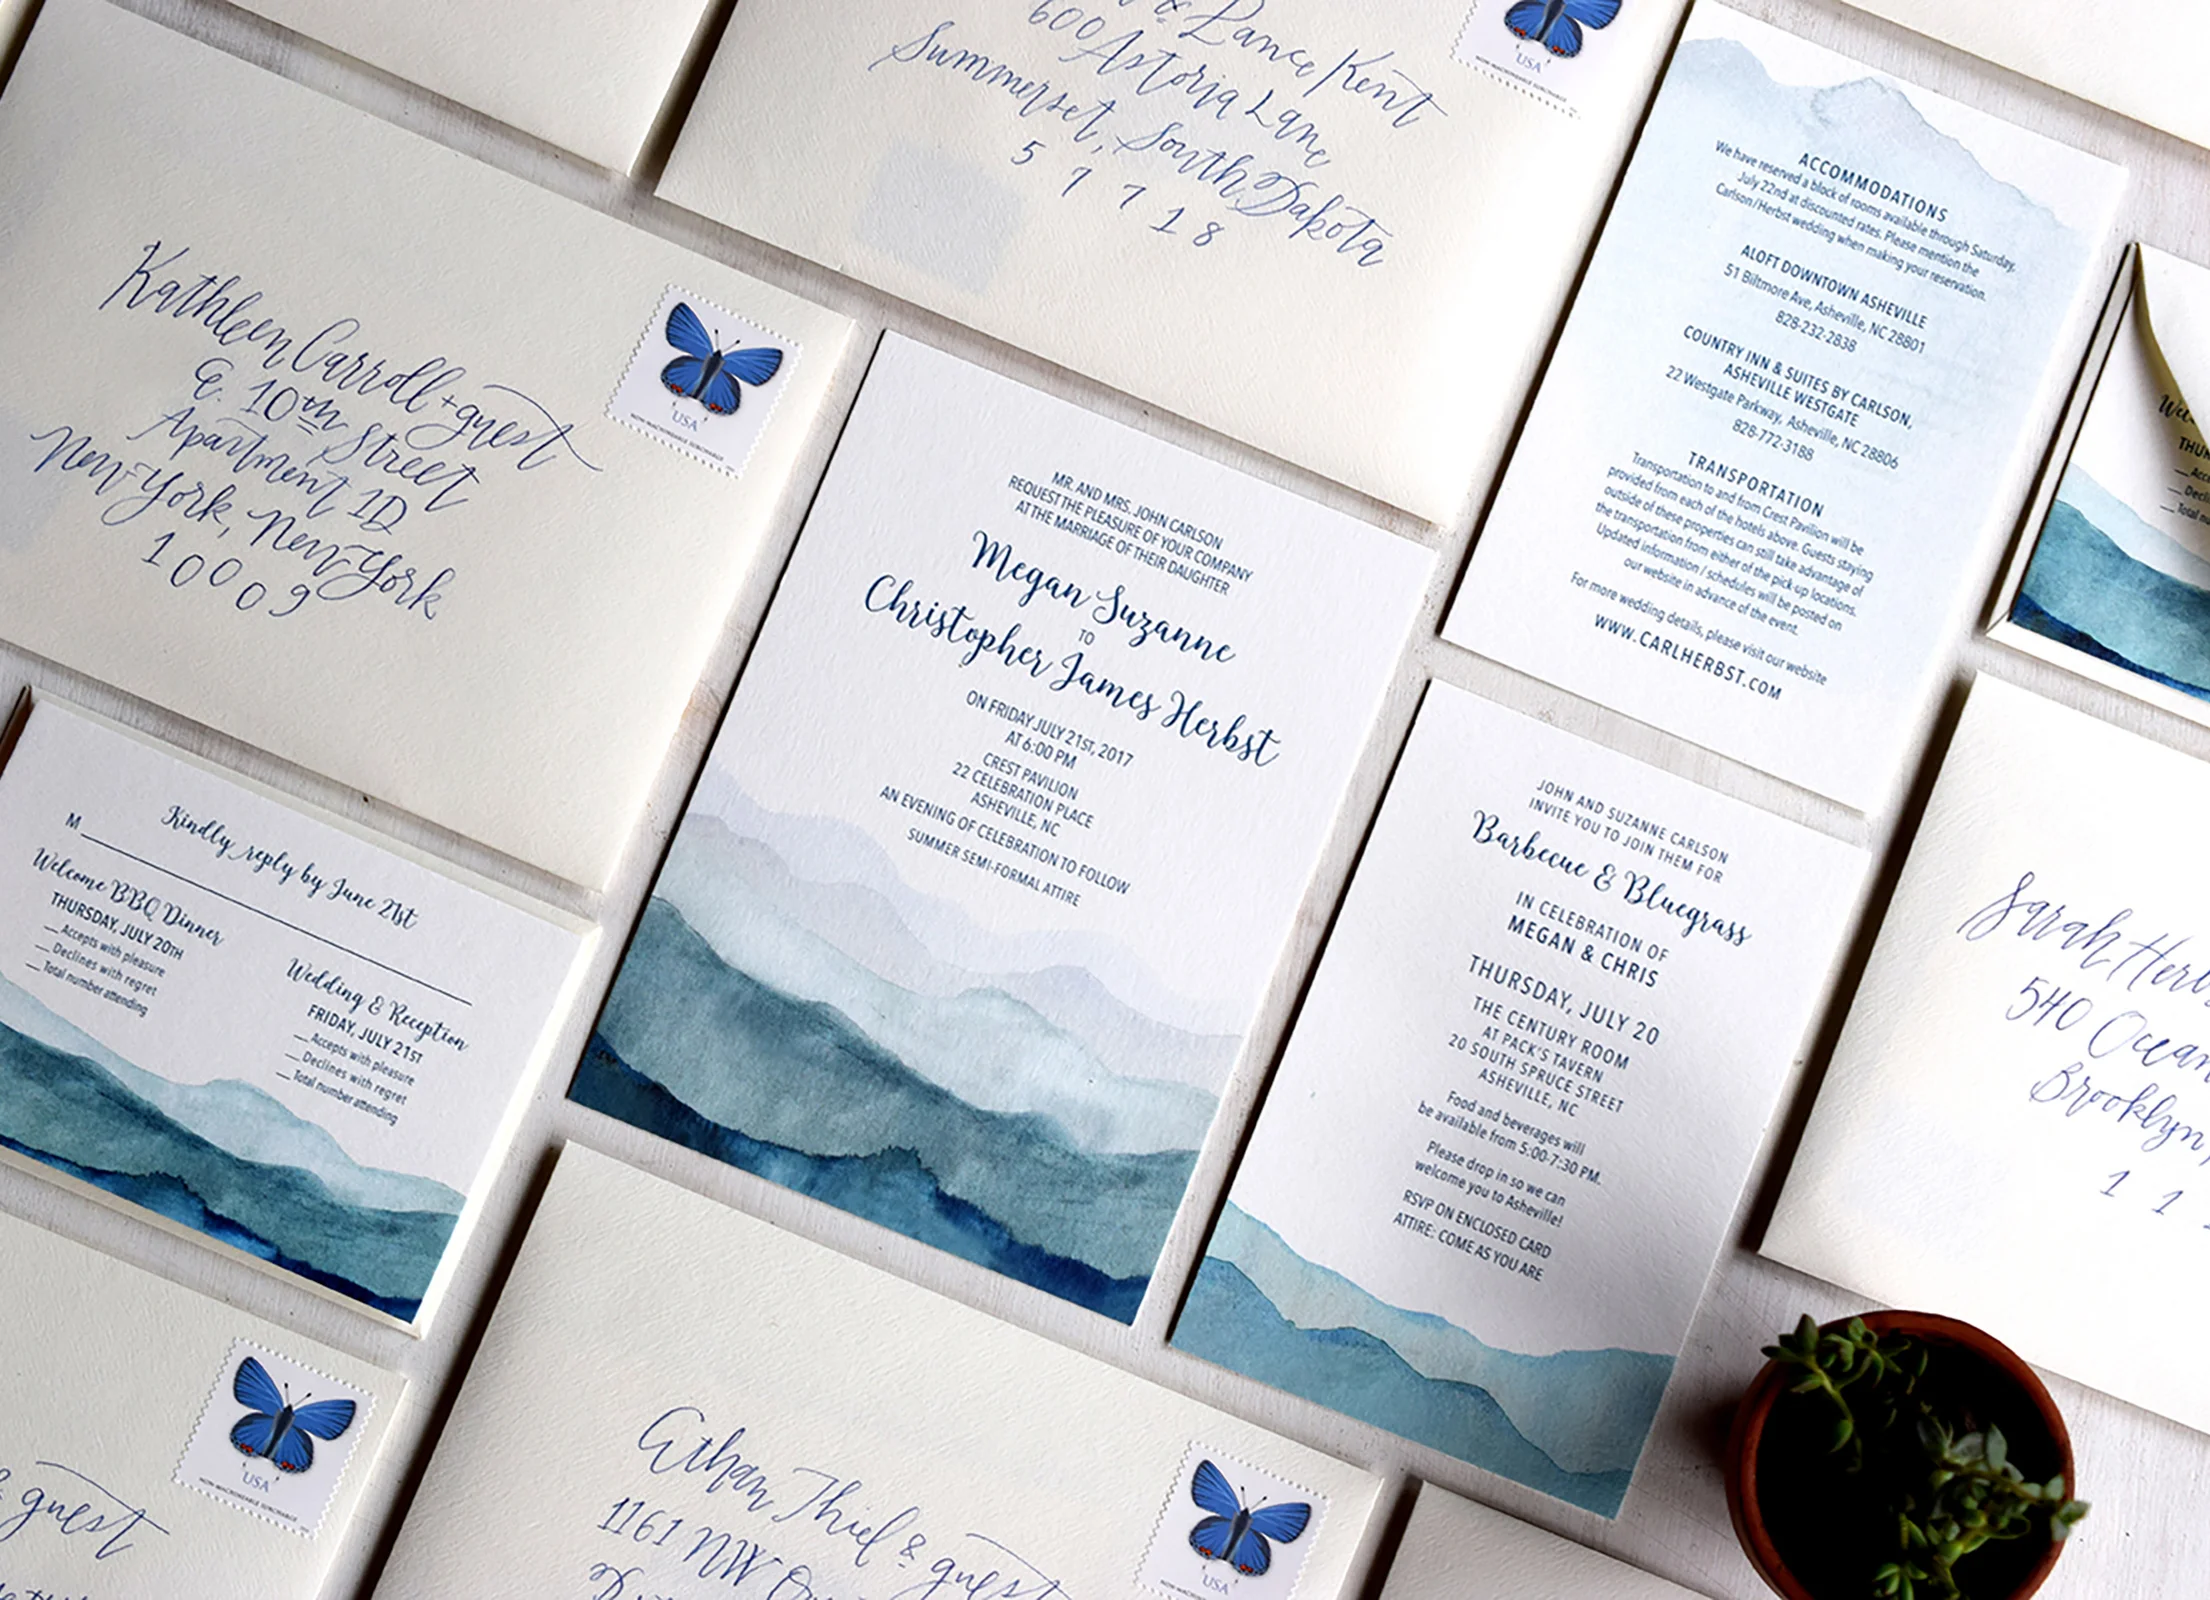 & Lance Kent
600 Astoria Lane
Summerset, South Dakota
5 7 7 1 8
USA
NON-MACHINEABLE SURCHARGE
Kathleen Carroll + guest
E. 10th Street
Apartment 1D
New York, New York
1 0 0 0 9
USA
NON-MACHINEABLE SURCHARGE
MR. AND MRS. JOHN CARLSON
REQUEST THE PLEASURE OF YOUR COMPANY
AT THE MARRIAGE OF THEIR DAUGHTER
Megan Suzanne
TO
Christopher James Herbst
ON FRIDAY JULY 21ST, 2017
AT 6:00 PM
CREST PAVILION
22 CELEBRATION PLACE
ASHEVILLE, NC
AN EVENING OF CELEBRATION TO FOLLOW
SUMMER SEMI-FORMAL ATTIRE
ACCOMMODATIONS
We have reserved a block of rooms available through Saturday,
July 22nd at discounted rates. Please mention the
Carlson/Herbst wedding when making your reservation.
ALOFT DOWNTOWN ASHEVILLE
51 Biltmore Ave, Asheville, NC 28801
828-232-2838
COUNTRY INN & SUITES BY CARLSON,
ASHEVILLE WESTGATE
22 Westgate Parkway, Asheville, NC 28806
828-772-3188
TRANSPORTATION
Transportation to and from Crest Pavilion will be
provided from each of the hotels above. Guests staying
outside of these properties can still take advantage of
the transportation from either of the pick-up locations.
Updated information / schedules will be posted on
our website in advance of the event.
For more wedding details, please visit our website
WWW.CARLHERBST.COM
Kindly reply by June 21st
M
Welcome BBQ Dinner
THURSDAY, JULY 20TH
__ Accepts with pleasure
__ Declines with regret
__ Total number attending
Wedding & Reception
FRIDAY, JULY 21ST
__ Accepts with pleasure
__ Declines with regret
__ Total number attending
JOHN AND SUZANNE CARLSON
INVITE YOU TO JOIN THEM FOR
Barbecue & Bluegrass
IN CELEBRATION OF
MEGAN & CHRIS
THURSDAY, JULY 20
THE CENTURY ROOM
AT PACK'S TAVERN
20 SOUTH SPRUCE STREET
ASHEVILLE, NC
Food and beverages will
be available from 5:00-7:30 PM.
Please drop in so we can
welcome you to Asheville!
RSVP ON ENCLOSED CARD
ATTIRE: COME AS YOU ARE
Sarah Herb
540 Ocean
Brooklyn,
1 1
& guest
USA
NON-MACHINEABLE SURCHARGE
Ethan Thiel & guest
1161 NW
USA
NON-MACHINEABLE SURCHARGE